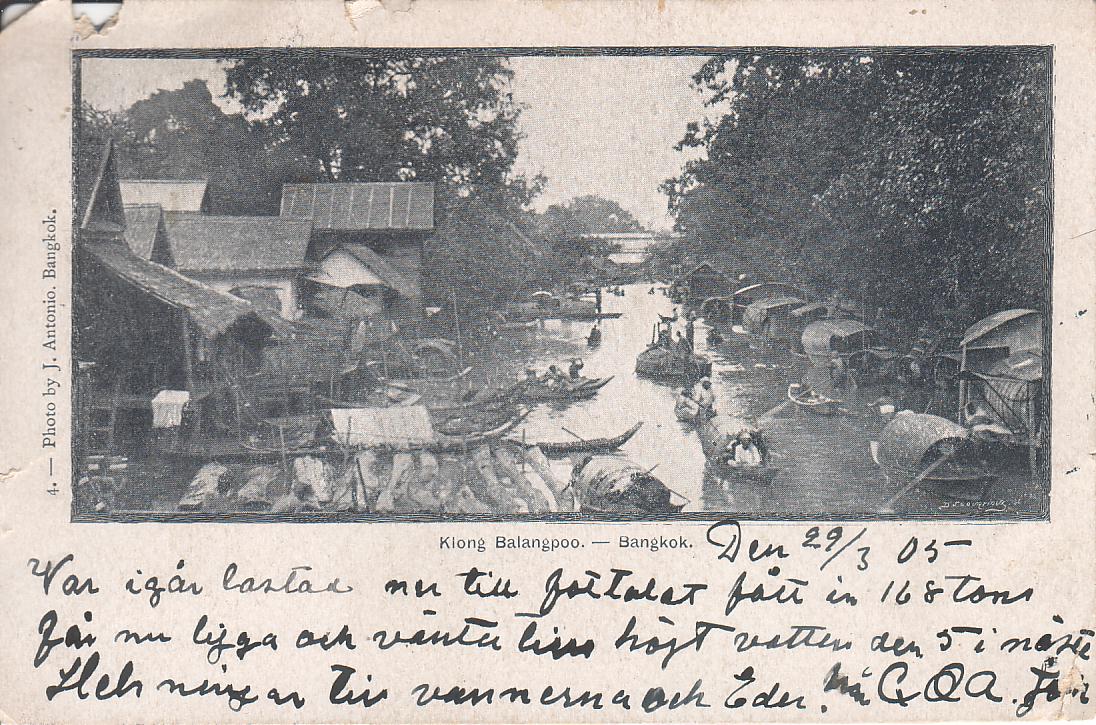 4. — Photo by J. Antonio. Bangkok.
Klong Balangpoo. — Bangkok.
Den 29/3 05
Var igår lastad ner till fått in 168 tons
får nu ligga och vänta tills högt vatten den 5 i näste
Helsningar till vännerna och Eder. från